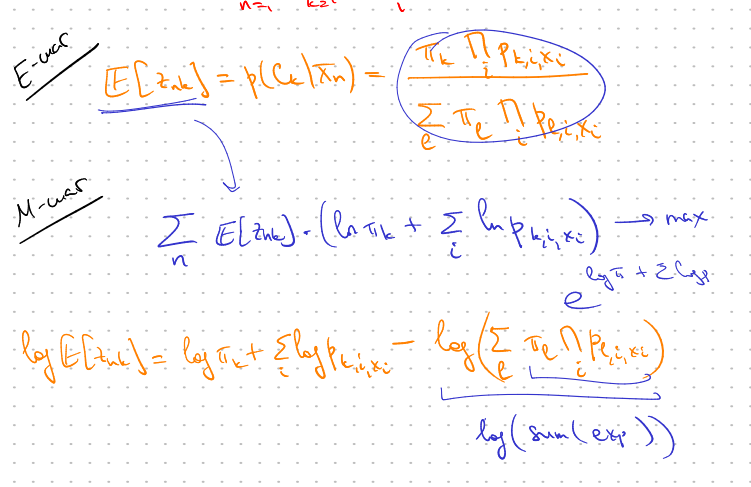 n=1 k=1 i
E-шаг
𝔼[z_{nk}] = p(C_k | x̄_n) = \frac{π_k ∏_i p_{k,i,x_i}}{∑_ℓ π_ℓ ∏_i p_{ℓ,i,x_i}}
M-шаг
∑_n 𝔼[z_{nk}] · (ln π_k + ∑_i ln p_{k,i,x_i}) → max
e^{log π + ∑ log p}
log 𝔼[z_{nk}] = log π_k + ∑_i log p_{k,i,x_i} − log(∑_ℓ π_ℓ ∏_i p_{ℓ,i,x_i})
log(sum(exp))